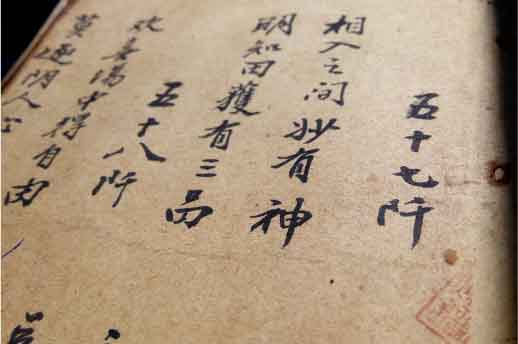 五十七阡
相入之间妙有神
明知田獲有三品
五十八阡
欢喜場中得自由
莫逐阴人